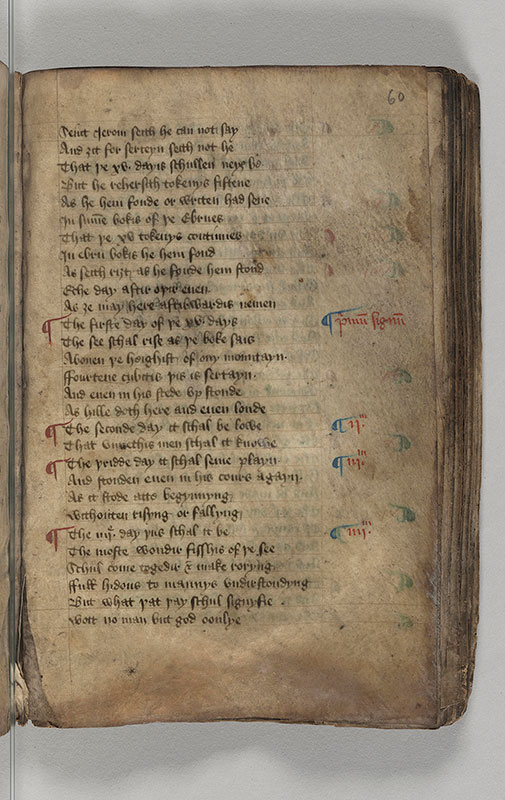 60
Seint Jerom seith he can not say
And ȝit for serteyn seith not he
That þe xv. dayis schullen
But he rehersith tokenys fiftene
As he hem fonde or writen had sene
In summe bokis of þe Ebrues
That þe xv tokenys contiunes
In ebru bokis he hem fond
As seith riȝt as he fonde hem stond
Eche day aftir oþir euen
As ȝe may here aftirwardis nemen
¶ The firste day of þe xv. days
¶ primum signum
The see schal rise as þe boke sais
Abouen þe heighist of ony mountayn.
Ffourtene cubitis þis is sertayn.
And euen in his stede vp stonde
As hille doth here and euen londe
¶ The seconde day it schal be lowe
¶ ij.m
That vnnethis men schal it knowe
¶ The þridde day it schal seme playn
¶ iij.m
And stonden euen in his cours agayn.
As it stode atte begynnyng
Withouten risyng or fallyng
¶ The iiij. day þus schal it be
¶ iiij.m
The moste wondir fisshis of þe see
Schul come togedir & make roryng
Ffull hidous to mannys vndirstondyng
But what þat þay schul signyfie
Wott no man but god oonlye